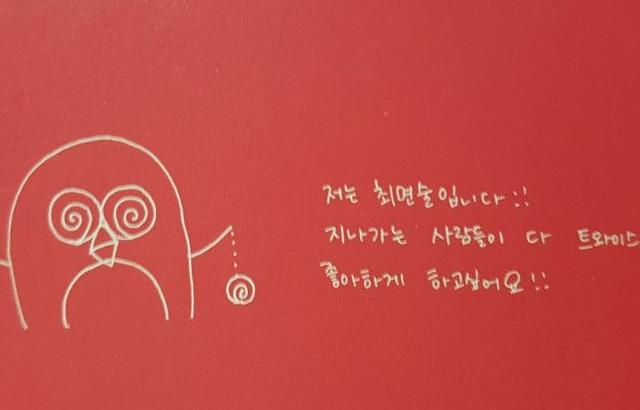 저는 최면술입니다!!
지나가는 사람들이 다 트와이스
좋아하게 하고싶어요!!